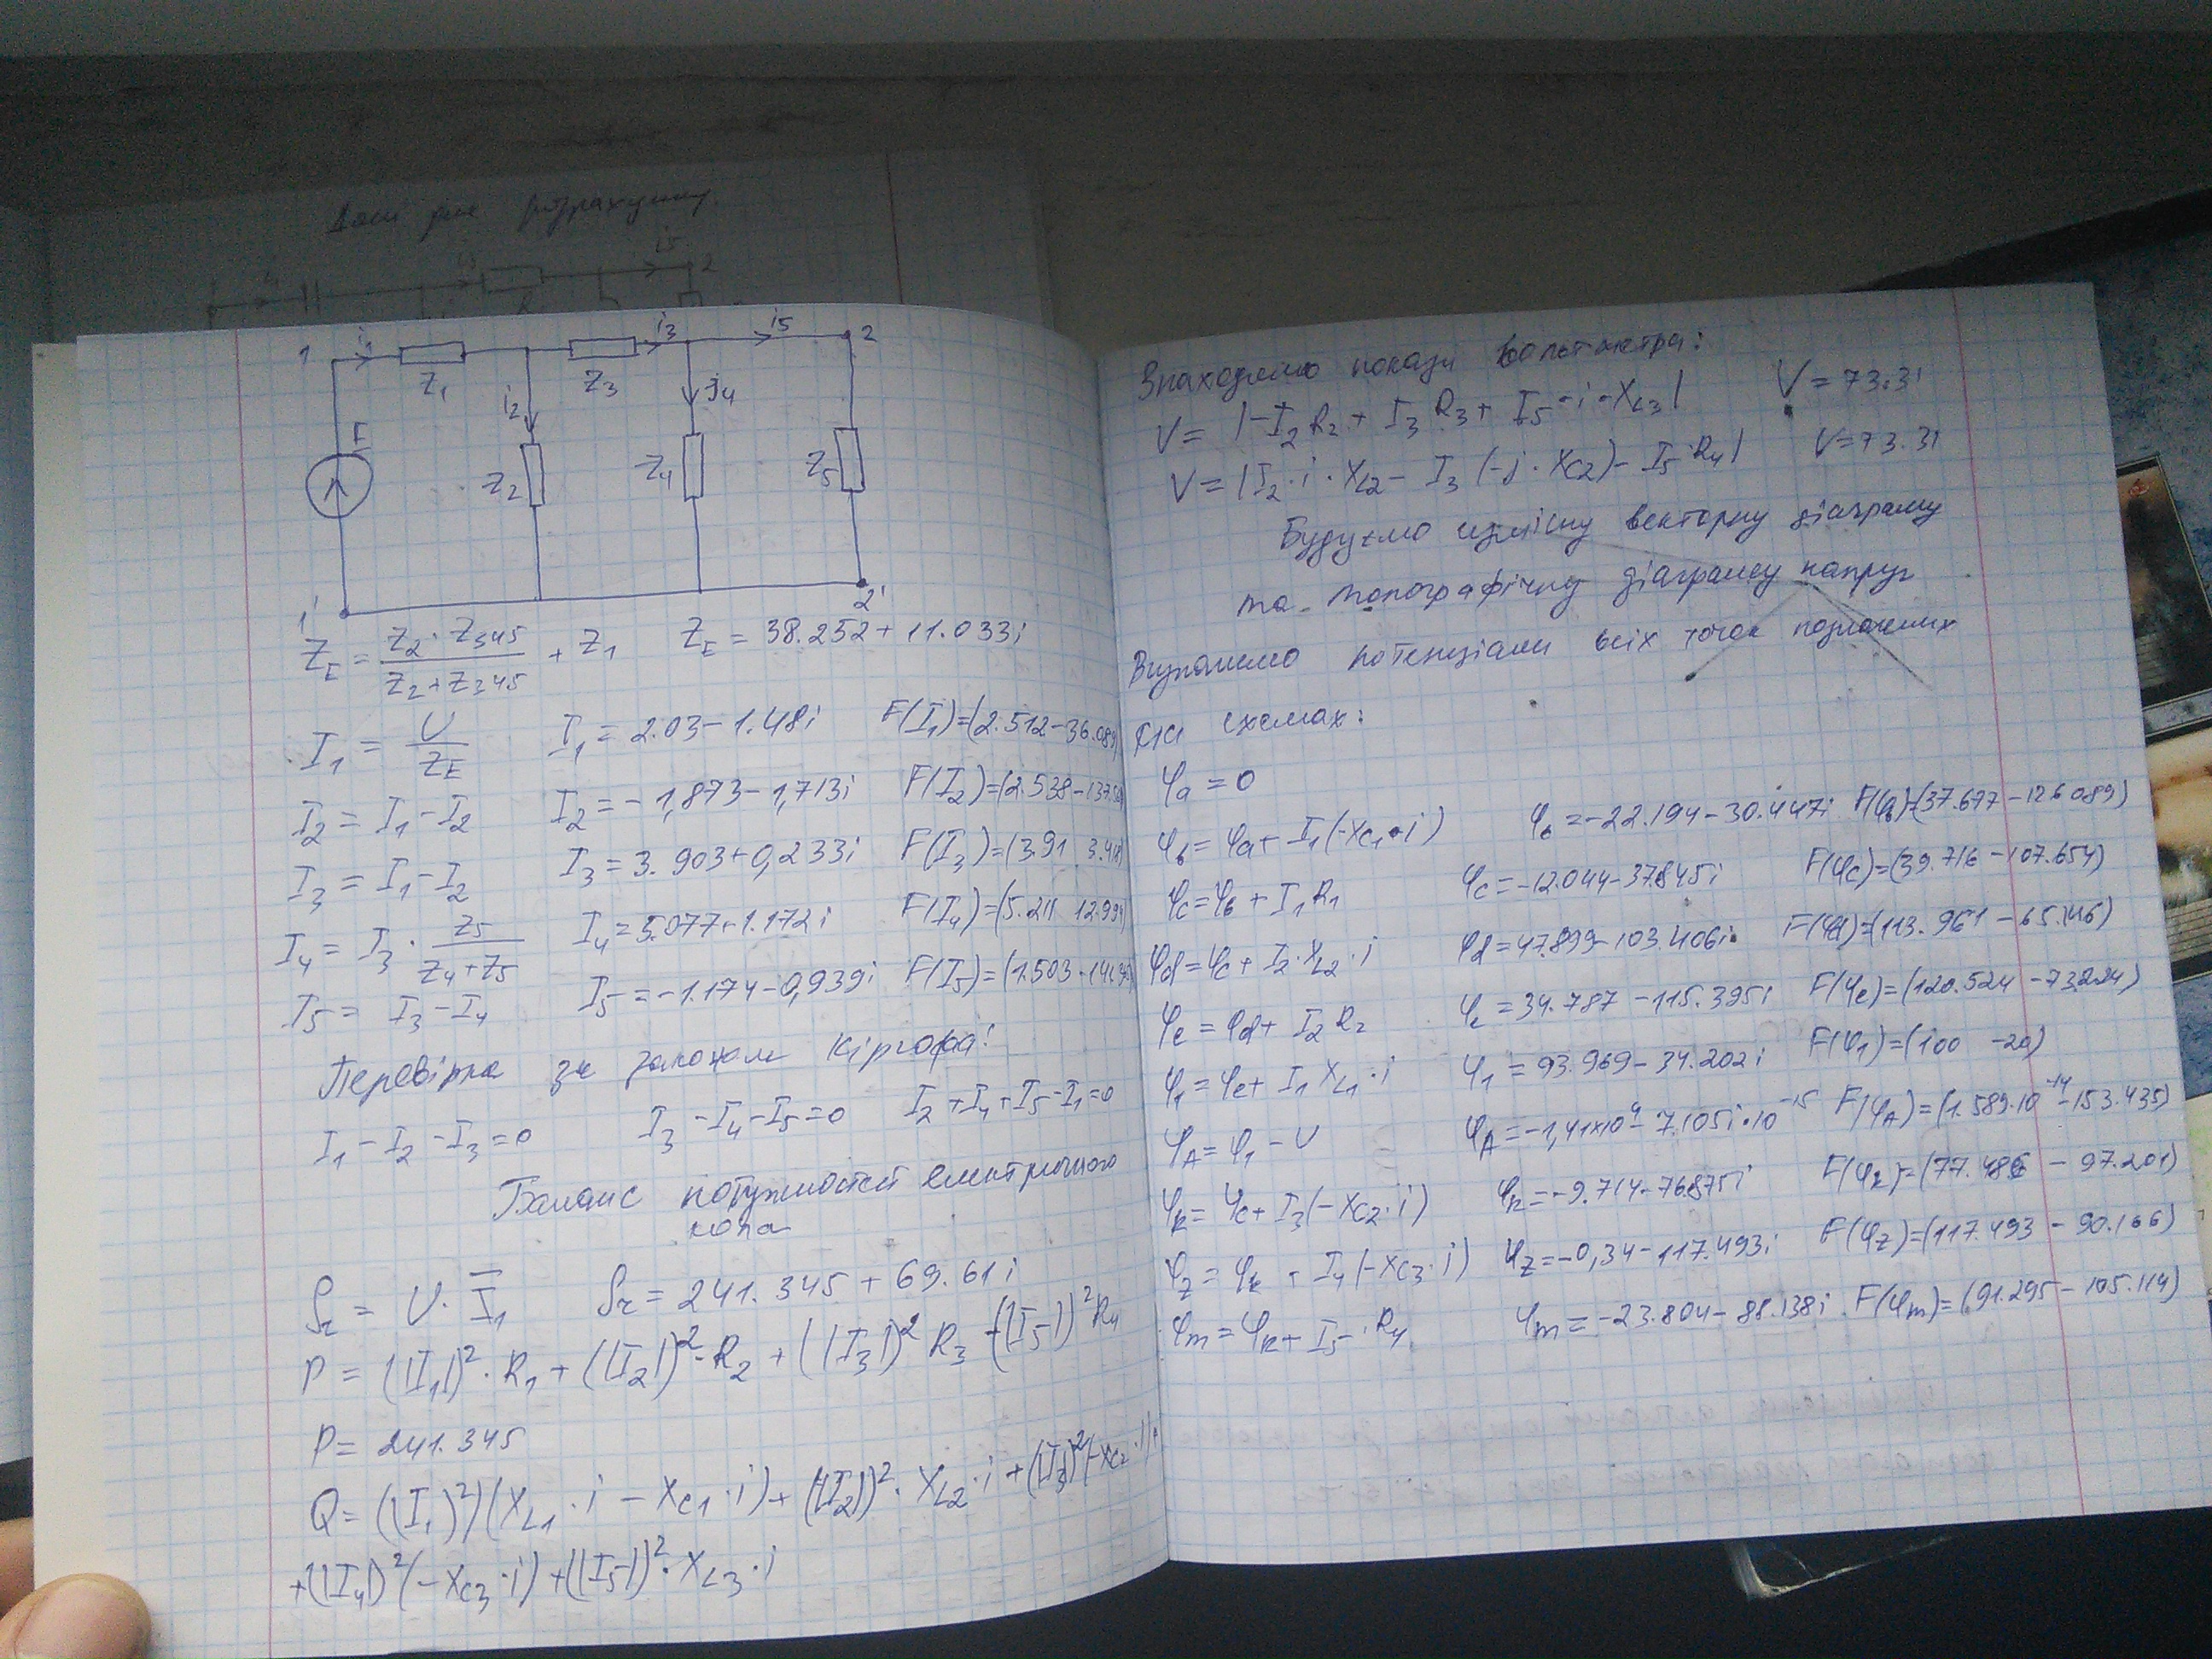 Дані для розрахунку.
i5
2
1 i1 i3 i5 2
Z1 Z3
i2 i4
E Z2 Z4 Z5
1' 2'
Z_E = (Z2·Z345)/(Z2+Z345) + Z1 Z_E = 38.252+11.033i
I1 = U/Z_E I1 = 2.03-1.48i F(I1)=(2.512-36.089)
I2 = I1-I2 I2 = -1,873-1,713i F(I2)=(2.538-137.
I3 = I1-I2 I3 = 3.903+0,233i F(I3)=(3.91 3.418)
I4 = I3·Z5/(Z4+Z5) I4=5.077+1.172i F(I4)=(5.211 12.994)
I5 = I3-I4 I5=-1.174-0,939i F(I5)=(1.503-141.
Перевірка за законом Кіргофа!
I1-I2-I3=0 I3-I4-I5=0 I2+I4+I5-I1=0
Баланс потужностей електричного
кола
Sr = U·I̅1 Sr = 241.345+69.61i
P = (|I1|)²·R1+(|I2|)²·R2+(|I3|)²R3+(|I5|)²R4
P = 241.345
Q = (|I1|²)(XL1·i-XC1·i)+(|I2|)²·XL2·i+(|I3|)²(-XC2·i)+
+(|I4|)²(-XC3·i)+(|I5|)²·XL3·i
Знаходимо покази вольтметра:
V = |-I2R2+I3R3+I5·i·XL3| V=73.31
V = |I2·i·XL2-I3(-j·XC2)-I5·R4| V=73.31
Будуємо векторну діаграму
та топографічну діаграму напруг
Визначимо потенціали всіх точок позначених
на схемах:
φa = 0
φb = φa+I1(-XC1·i) φb=-22.194-30.447i F(φb)=(37.677-126.089)
φc=φb+I1R1 φc=-12.044-37.845i F(φc)=(39.716-107.654)
φd=φc+I2·XL2·i φd=47.899-103.406i F(φd)=(113.961-65.146)
φe = φd+I2R2 φe=34.787-115.395i F(φe)=(120.524-73.224)
φ1=φe+I1XL1·i φ1=93.969-34.202i F(φ1)=(100 -20)
φA=φ1-U φA=-1,41×10⁻¹⁴-7.105i·10⁻¹⁵ F(φA)=(1.589·10⁻¹⁴-153.435)
φk=φc+I3(-XC2·i) φk=-9.714-76.875i F(φk)=(77.486-97.201)
φz=φk+I4(-XC3·i) φz=-0,34-117.493i F(φz)=(117.493-90.166)
φm=φk+I5·R4 φm=-23.804-88.138i F(φm)=(91.295-105.114)